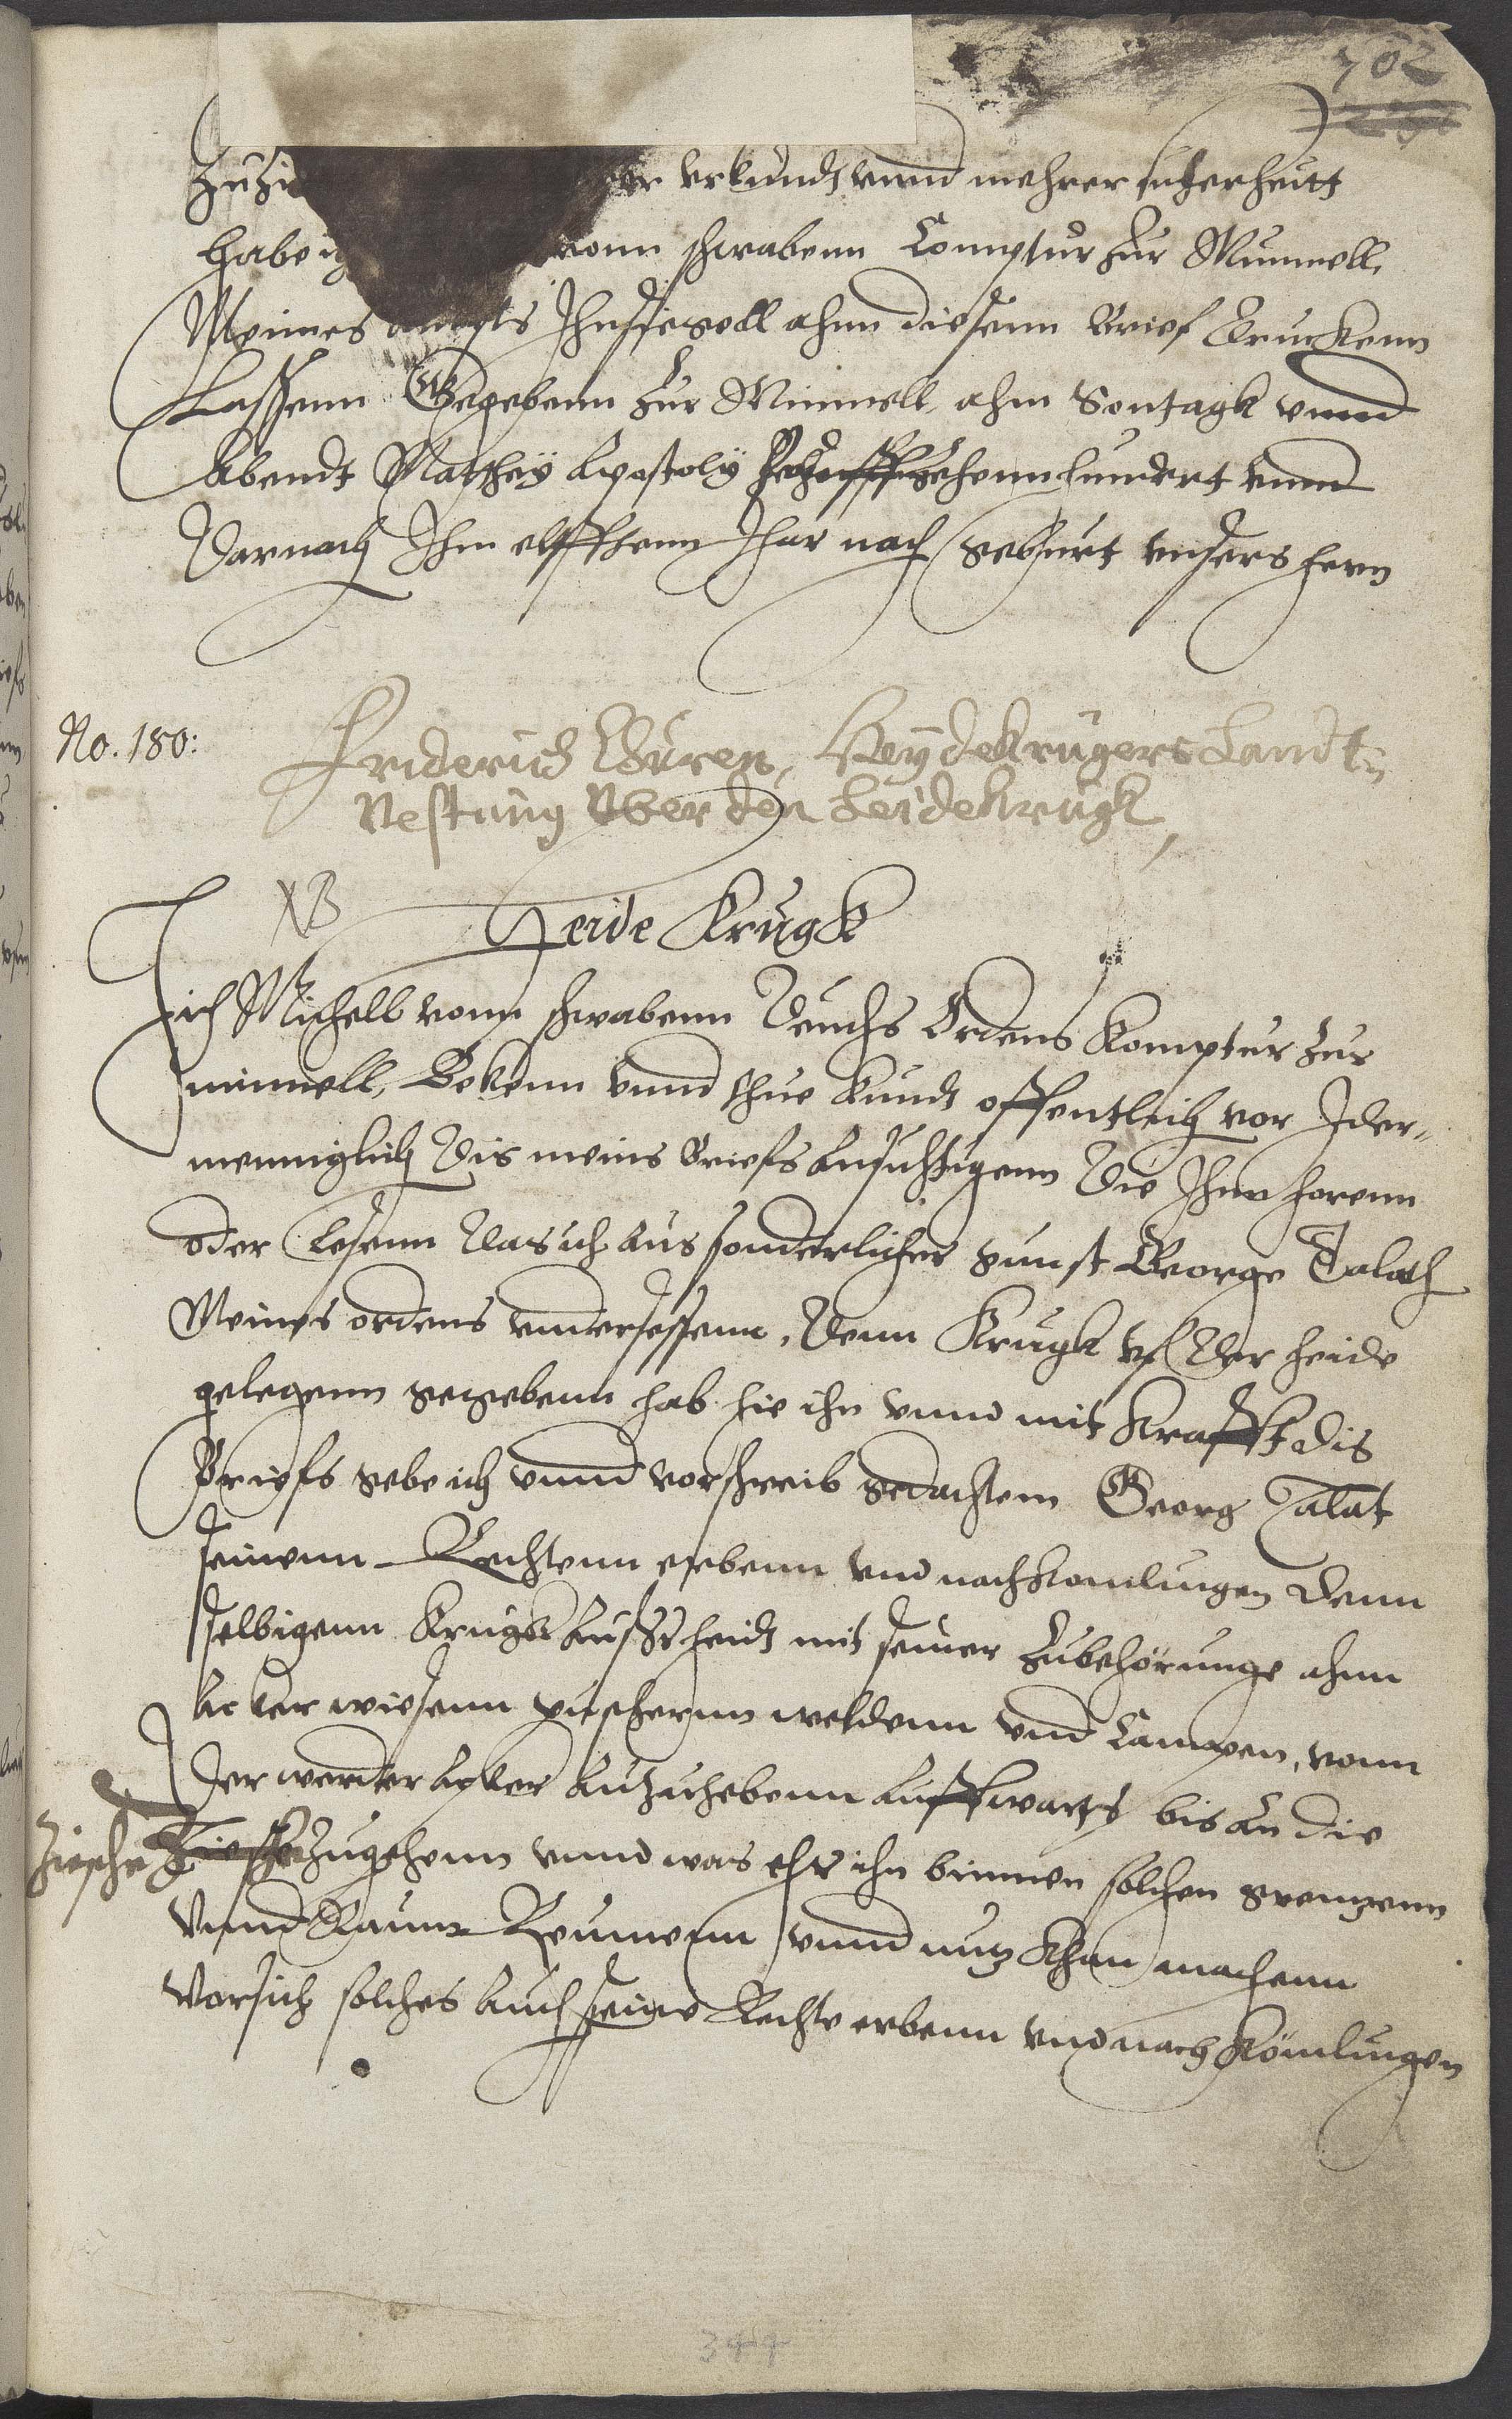 702
Zuzi er vrkundt vnnd mehrer sicherheitt
habe ich vonn schwabenn Comptur zur Mummell,
Meines Ampts Jhnsiegell ahnn diesenn Brief Druckenn
Lassenn Gegebenn zur Mummell, ahm Sontagk vnnd
Abendt Matthey Apostoly zehenn hundert vnnd
Darnach Jhm elfftenn Jhar nach geburt vnsers hern
No. 180:
Friderich Heydekrugers Landt=
Vestung vber den Heidekrugk,
NB
Heide Krugk
Jch Michell vonn schwabenn Deuchs Ordens Komptur zur
mümell, Bekenn vnnd thue kundt offentlich vor Jder=
menniglich Dis meins Briefs Ansichtigenn Die Jhnn horenn
oder Lesenn Das ich aus sonderlicher gunst George Talath
Meines ordens vndersessenn, Denn Krugk vf Der heide
gelegenn gegebenn hab hie ihn vnnd mit Krafft dis
Briefs gebe ich vnnd vorschreib gedachtem Georg Talat
seinenn Rechtenn erbenn vnd nachkomlingen Denn
selbigenn Krugk Auff der heidt mit seiner Zubehörunge ahnn
Acker wiesenn puschernn weldenn vnd Campen, vonn
Der werder Acker Anzuhebenn Auffwarts bis an die
Ziesche Ziesche Zugehenn vnnd was ehr ihn binnen solchen grentzenn
Vnnd Raum Reumenn vnnd nutz khan machenn
Vorsich solches Auch seine Rechte erbenn vnd nach Kömlingen
344